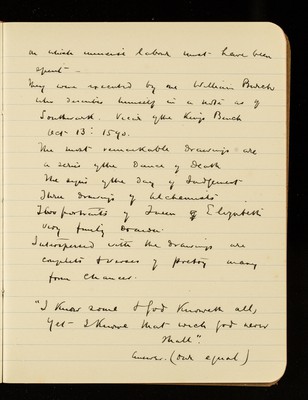 on which immense labour must have been
spent –
They were executed by one William Burch
who describes himself in a note as of
Southwark. Vicar of the Kings Bench
Oct 13: 1590.
The most remarkable drawings are
a series of the Dance of Death
The signs of the Day of Judgement
Three drawings of alchemists
Two portraits of Queen Elizabeth
very finely
Interspersed with the drawings are
complete verses of poetry many
from Chaucer.
"I Know some & God Knoweth all,
Yet I Know that wich God never
shall".
Answer. (our equal)